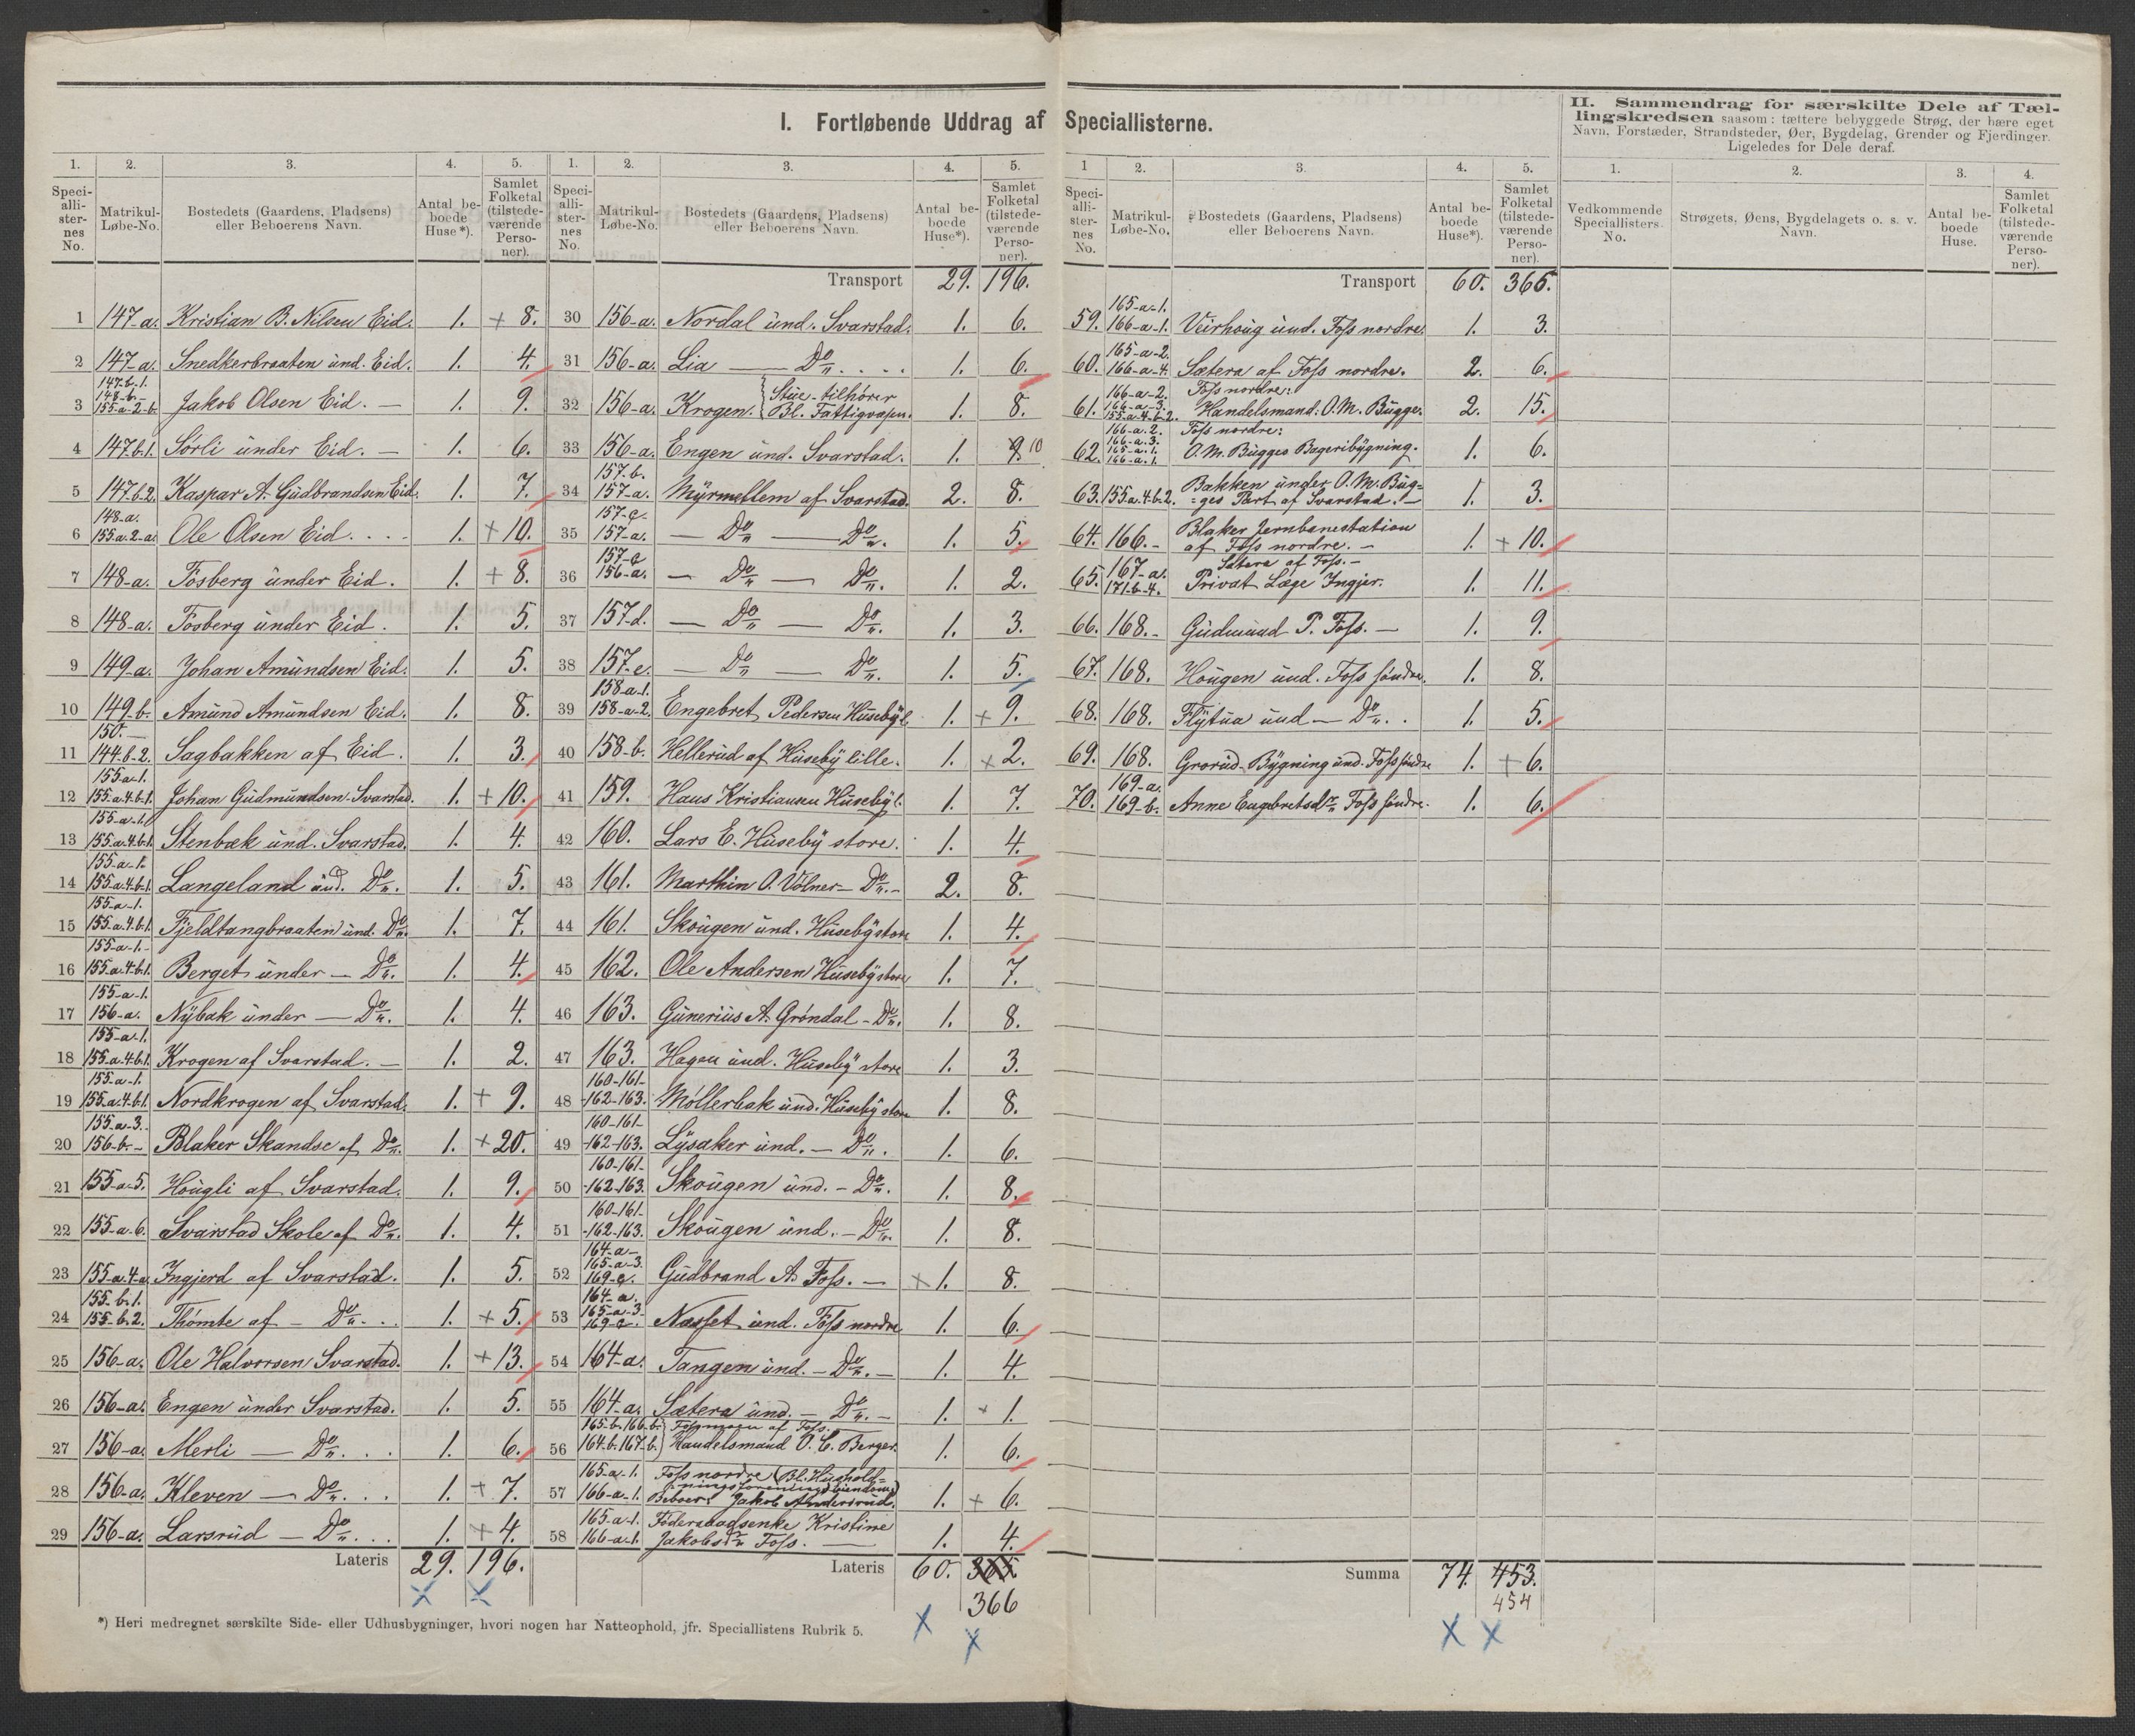 I. Fortløbende Uddrag af Speciallisterne.
II. Sammendrag for særskilte Dele af Tæl-
lingskredsen saasom: tættere bebyggede Strøg, der bære eget
Navn, Forstæder, Strandsteder, Øer, Bygdelag, Grender og Fjerdinger.
Ligeledes for Dele deraf.
1. 2. 3. 4. 5.
Speci-alli-ster-nes No. Matrikul-Løbe-No. Bostedets (Gaardens, Pladsens) eller Beboerens Navn. Antal be-boede Huse*). Samlet Folketal (tilstede-værende Perso-ner).
1 147-a. Kristian B. Nilsen Eid. 1. + 8.
2 147-a. Snedkerbraaten und. Eid. 1. 4.
3 147.b.1. 148-b.- 155-a-2-b. Jakob Olsen Eid. — 1. 9.
4 147.b.1. Sørli under Eid. — 1. 6.
5 147.b-2. Kaspar A. Gudbrandsen Eid. 1. 7.
6 148-a. 155.a.2-a. Ole Olsen Eid. . . . 1. + 10.
7 148-a. Fosberg under Eid. 1. + 8.
8 148-a. Fosberg under Eid. 1. 5.
9 149-a. Johan Amundsen Eid. 1. 5.
10 149-b. Amund Amundsen Eid. 1. 8.
11 150.— 144.b-2. Sagbakken af Eid. 1. 3.
12 155-a-1. 155.a.4-b-1. Johan Gudmundsen Svarstad. 1. + 10.
13 155-a-1. 155.a.4.b.1. Stenbæk und. Svarstad. 1. 4.
14 155-a-1. 155-a.4-b-1. Langeland und. Do. 1. 5.
15 155-a-1. 155.a.4.b.1. Fjeldtangbraaten und. Do. 1. 7.
16 155-a-1.- 155.a.4.b.1. Berget under — Do. 1. 4.
17 155-a-1. 156-a. Nybak under — Do. 1. 4.
18 155-a-1. 155.a.4.b.1. Krogen af Svarstad. — 1. 2.
19 155-a-1. 155.a.4-b.1. Nordkrogen af Svarstad. 1. + 9.
20 155-a-3.- 156-b.- Blaker Skandse af Do. 1. + 20.
21 155-a-5. Hougli af Svarstad. 1. 9.
22 155-a-6. Svarstad Skole af Do. 1. 4.
23 155-a.4-a. Ingjerd af Svarstad. 1. 5.
24 155-b.1. 155-b.2. Thomte af — Do. . . 1. + 5.
25 156-a. Ole Halvorsen Svarstad. 1. + 13.
26 156-a. Engen under Svarstad. 1. 5.
27 156-a. Merli — Do. . . 1. 6.
28 156-a. Kleven — Do. . . 1. + 7.
29 156-a. Larsrud — Do. . . 1. + 4.
Lateris 29. 196.
*) Heri medregnet særskilte Side- eller Udhusbygninger, hvori nogen har Natteophold, jfr. Speciallistens Rubrik 5.
1. 2. 3. 4. 5.
Speci-alli-ster-nes No. Matrikul-Løbe-No. Bostedets (Gaardens, Pladsens) eller Beboerens Navn. Antal be-boede Huse*). Samlet Folketal (tilstede-værende Perso-ner).
Transport 29. 196.
30 156-a. Nordal und. Svarstad. 1. 6.
31 156-a. Lia — Do. . . . 1. 6.
32 156-a. Krogen. { Stue tilhører Bl. Fattigvæsen. 1. 8.
33 156-a. Engen und. Svarstad. 1. 9. 10
34 157-b. 157-a. Myrmellem af Svarstad. 2. 8.
35 157-c. 157-a. — Do — Do. 1. 5.
36 157-c 156-a. — Do — Do. 1. 2.
37 157-d. — Do — Do. 1. 3.
38 157-e. — Do — Do. 1. 5.
39 158-a-1. 158-a-2. Engebret Pedersen Huseby l. 1. + 9.
40 158-b. Hellerud af Huseby lille. 1. + 2.
41 159. Hans Kristiansen Huseby l. 1. 7.
42 160. Lars E. Huseby store. 1. 4.
43 161. Marthin O. Volner — Do. - 2. 8.
44 161. Skougen und. Huseby store 1. 4.
45 162. Ole Andersen Huseby store 1. 7.
46 163. Gunerius A. Grøndal - Do. 1. 8.
47 163. Hagen und. Huseby store 1. 3.
48 160-161- -162-163. Møllerbak und. Huseby store 1. 8.
49 160-161- -162-163. Lysaker und. — Do. 1. 6.
50 160-161- -162-163. Skougen und. - Do. 1. 8.
51 160-161- -162-163. Skougen und. - Do. 1. 8.
52 164-a- 165-a-3. 169-c. Gudbrand A. Foss. — + 1. 8.
53 164-a. 165-a-3- 169-c. Næsset und. Foss nordre 1. 6.
54 164-a. Tangen und. - Do. - 1. 4.
55 164-a. Sætera und. - Do. - 1. + 1.
56 165-b. 166-b. 164-b. 167-b. Fossmoen af Foss. Handelsmand O. C. Berger. 1. 6.
57 165-a-1. 166-a-1. Foss nordre (Bl. Hushold- ningsforenings Eiendom) Beboer: Jakob Andersrud. 1. + 6.
58 165-a-1. 166-a-1. Føderaadsenke Kristine Jakobsdr. Foss. — 1. 4.
Lateris 60. 365.
366
1 2. 3. 4. 5.
Speci-alli-ster-nes No. Matrikul-Løbe-No. Bostedets (Gaardens, Pladsens) eller Beboerens Navn. Antal be-boede Huse*). Samlet Folketal (tilstede-værende Perso-ner).
Transport 60. 365.
59. 165-a-1. 166-a-1. Veirhoug und. Foss nordre. 1. 3.
60. 165-a-2. 166-a-4. Sætera af Foss nordre. 2. 6.
61. 166-a-2. 166-a-3. 155-a-4-b-2. Foss nordre: Handelsmand. O. M. Bugge. 2. 15.
62. 166-a.2. 166-a.3. 165-a.1. 166-a.1. Foss nordre: O. M. Bugges Bageribygning. 1. 6.
63. 155.a.4.b.2. Bakken under O. M. Bug= =ges Part af Svarstad. — 1. 3.
64. 166.- Blaker Jernbanestation af Foss nordre. - 1. + 10.
65. 167-a. 171-b-4. Sætera af Foss.- Privat Læge Ingjer. 1. 11.
66. 168.- Gudmund P. Foss. — 1. 9.
67. 168. Hougen und. Foss søndre. 1. 8.
68. 168. Flytua und — Do. . 1. 5.
69. 168. Grorud-Bygning und. Foss søndre 1. + 6.
70. 169-a. 169-b. Anne Engebretsdr. Foss søndre. 1. 6.
Summa 74. 453.
454
1. 2. 3. 4.
Vedkommende Speciallisters No. Strøgets, Øens, Bygdelagets o. s. v. Navn. Antal be-boede Huse. Samlet Folketal (tilstede-værende Perso-ner).